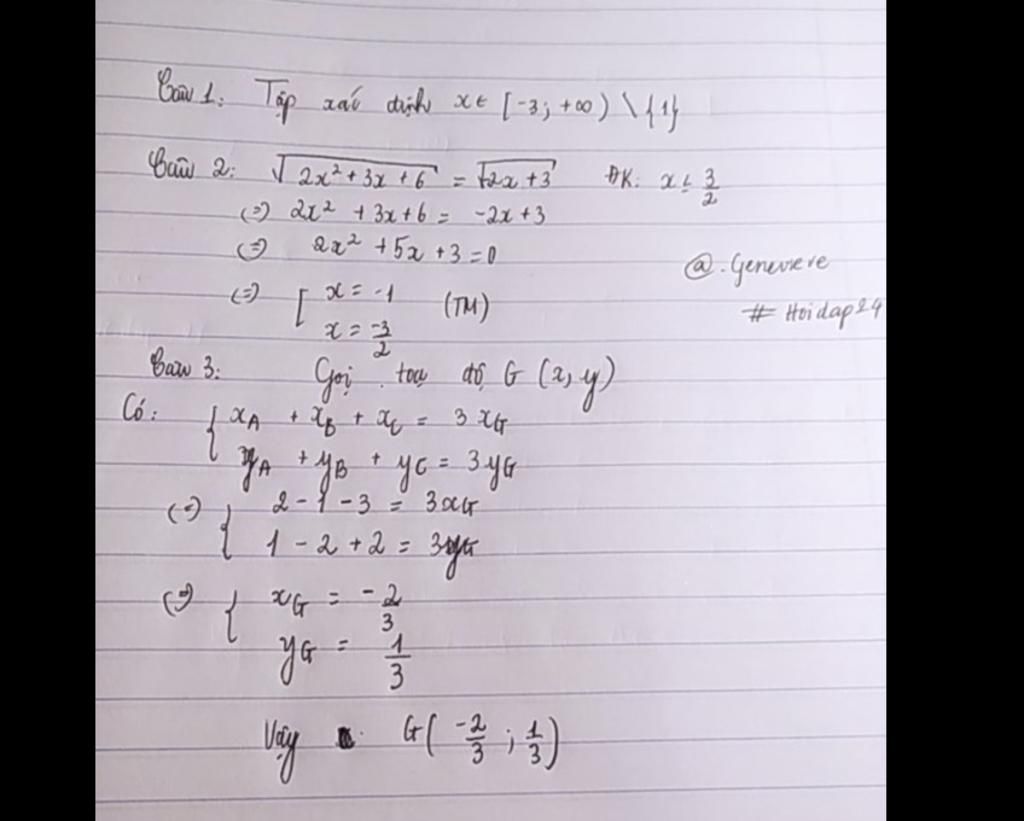 Câu 1: Tập xác định x ∈ [-3; +∞) \ {1}
Câu 2: √(2x² + 3x + 6) = √(-2x + 3) ĐK: x ≤ 3/2
(=) 2x² + 3x + 6 = -2x + 3
(=) 2x² + 5x + 3 = 0
@.Genevieve
(=) [ x = -1 (TM)
x = -3/2
# Hoidap24
Câu 3: Gọi toạ độ G (x, y)
Có: { x_A + x_B + x_C = 3x_G
y_A + y_B + y_C = 3y_G
(=) { 2 - 1 - 3 = 3x_G
1 - 2 + 2 = 3y_G
(=) { x_G = -2/3
y_G = 1/3
Vậy G(-2/3 ; 1/3)